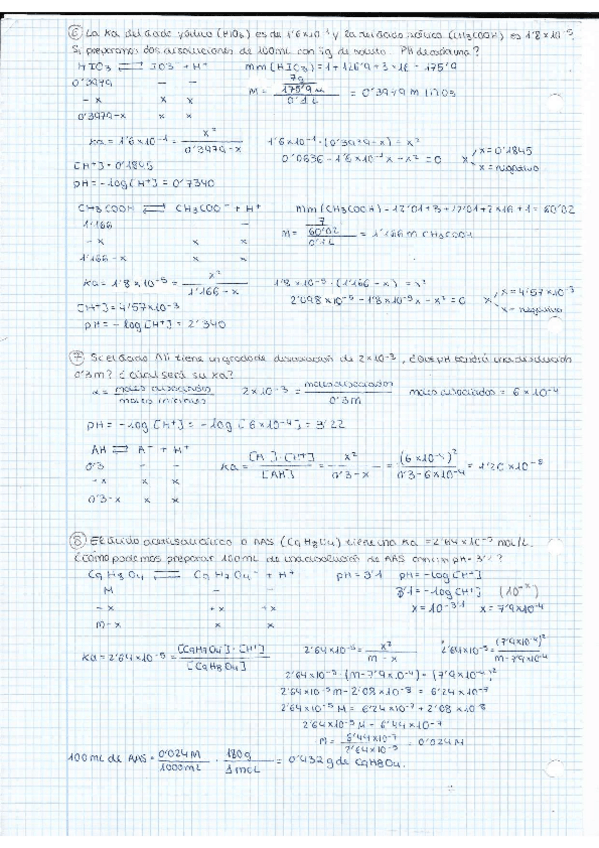 ⑥ La Ka del ácido yódico (HIO3) es de 1'6x10⁻¹ y la del ácido acético (CH3COOH) es 1'8x10⁻⁵.
Si preparamos dos disoluciones de 100mL con 7g de soluto. PH de cada una?
HIO3 ⇌ IO3⁻ + H⁺   mm(HIO3)=1+126'9+3x16 = 175'9
0'3979 – –   M = 7g / 175'9 / 0'1L = 0'3979 M HIO3
-x x x
0'3979-x x x
Ka = 1'6x10⁻¹ = x² / 0'3979-x   1'6x10⁻¹·(0'3979-x) = x²
0'0636 - 1'6x10⁻¹x - x² = 0   x x=0'1845
x = negativo
[H⁺] = 0'1845
pH = -log[H⁺] = 0'7340
CH3COOH ⇌ CH3COO⁻ + H⁺   mm(CH3COOH) = 12'01+3+12'01+2x16+1 = 60'02
1'166 – –   M = 7 / 60'02 / 0'1L = 1'166 M CH3COOH
-x x x
1'166-x x x
Ka = 1'8x10⁻⁵ = x² / 1'166-x   1'8x10⁻⁵·(1'166-x) = x²
2'098x10⁻⁵ - 1'8x10⁻⁵x - x² = 0   x x=4'57x10⁻³
x = negativo
[H⁺] = 4'57x10⁻³
pH = -log[H⁺] = 2'340
⑦ Si el ácido AH tiene un grado de disociación de 2x10⁻³, ¿Qué pH tendrá una disolución
0'3M? ¿Cuál será su Ka?
α = moles disociados / moles iniciales   2x10⁻³ = moles disociados / 0'3M   moles disociados = 6x10⁻⁴
pH = -log[H⁺] = -log[6x10⁻⁴] = 3'22
AH ⇌ A⁻ + H⁺
0'3 – –   Ka = [A⁻]·[H⁺] / [AH] = x² / 0'3-x = (6x10⁻⁴)² / 0'3-6x10⁻⁴ = 1'20x10⁻⁶
-x x x
0'3-x x x
⑧ El ácido acetilsalicílico o AAS (C9H8O4) tiene una Ka = 2'64x10⁻⁵ mol/L.
¿Cómo podemos preparar 100mL de una disolución de AAS con un pH= 3'1?
C9H8O4 ⇌ C9H7O4⁻ + H⁺   pH=3'1   pH=-log[H⁺]
M – –   3'1 = -log[H⁺] (10⁻ˣ)
-x +x +x   x = 10⁻³'¹   x = 7'9x10⁻⁴
M-x x x
Ka = 2'64x10⁻⁵ = [C9H7O4⁻]·[H⁺] / [C9H8O4]   2'64x10⁻⁵ = x² / M-x   2'64x10⁻⁵ = (7'9x10⁻⁴)² / M-7'9x10⁻⁴
2'64x10⁻⁵·(M-7'9x10⁻⁴) = (7'9x10⁻⁴)²
2'64x10⁻⁵M - 2'08x10⁻⁸ = 6'24x10⁻⁷
2'64x10⁻⁵M = 6'24x10⁻⁷ + 2'08x10⁻⁸
2'64x10⁻⁵M = 6'44x10⁻⁷
M = 6'44x10⁻⁷ / 2'64x10⁻⁵ = 0'024M
100mL de AAS · 0'024M / 1000mL · 180g / 1mol = 0'432g de C9H8O4.